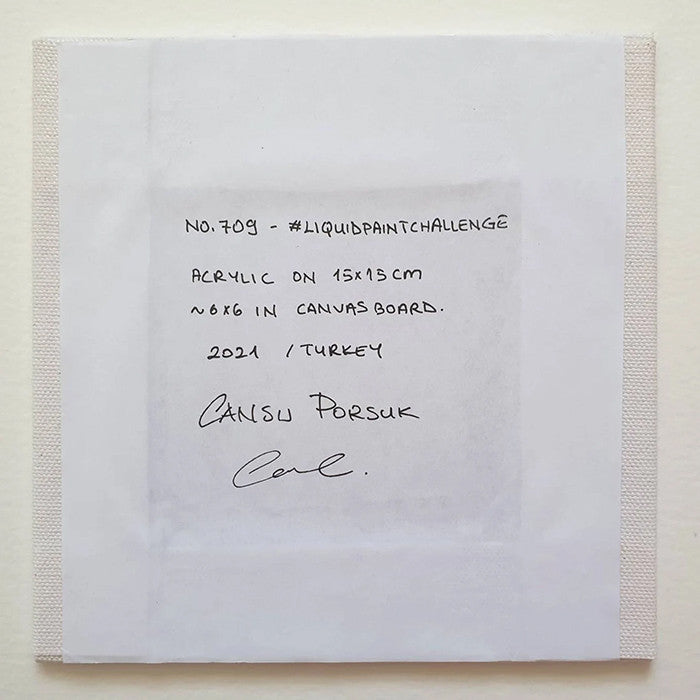 NO.709 - #LIQUIDPAINTCHALLENGE
ACRYLIC ON 15x15 CM
~6x6 IN CANVAS BOARD.
2021 / TURKEY
CANSU PORSUK